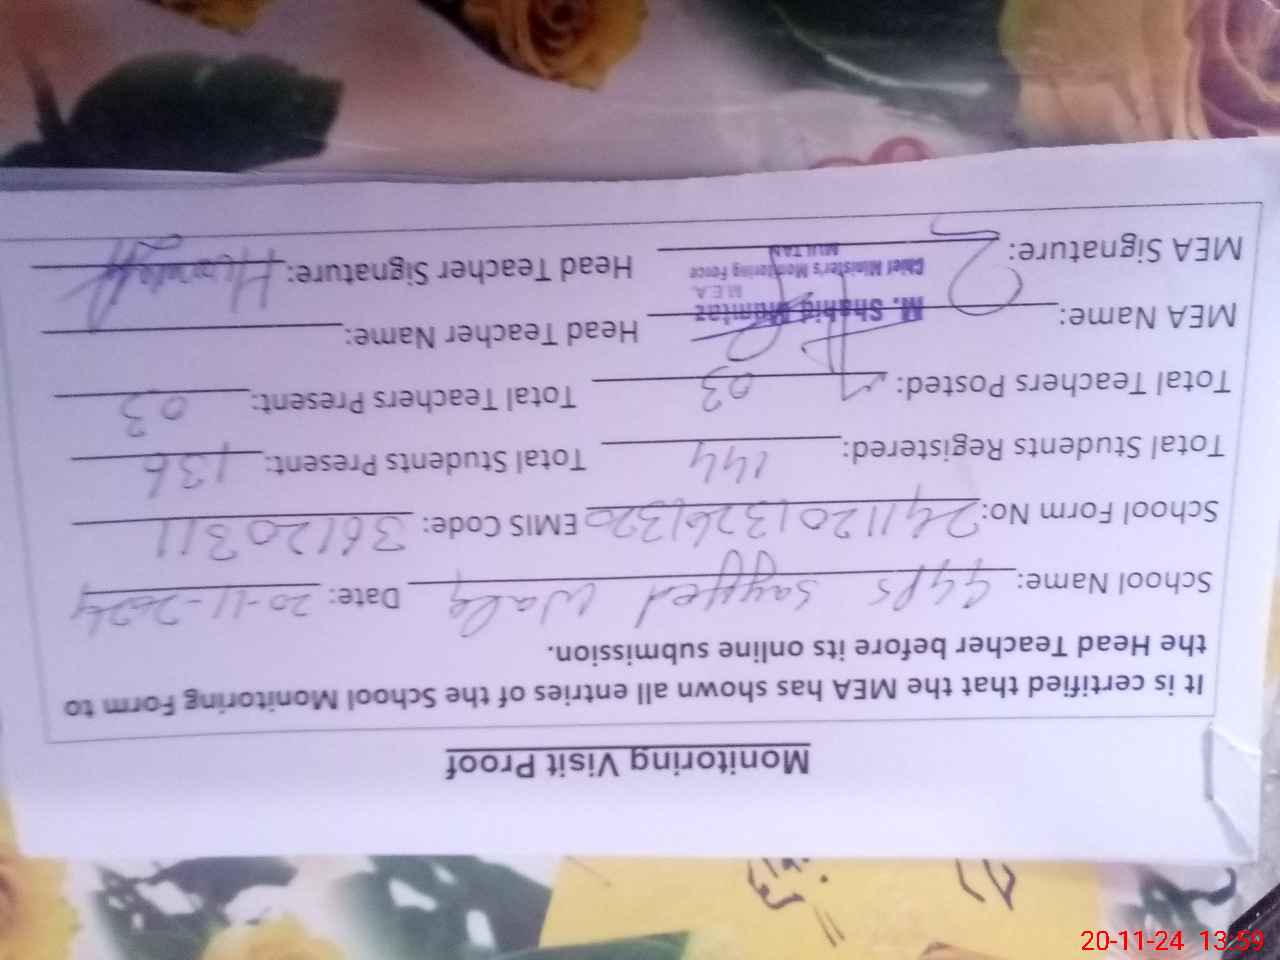 Monitoring Visit Proof
It is certified that the MEA has shown all entries of the School Monitoring Form to
the Head Teacher before its online submission.
School Name: GGPS Sayyed Wala Date: 20-11-2024
School Form No: 24112013261320 EMIS Code: 36120311
Total Students Registered: 144 Total Students Present: 136
Total Teachers Posted: 03 Total Teachers Present: 03
MEA Name: M. Shahid Mumtaz Head Teacher Name:
M.E.A.
Chief Minister's Monitoring Force
MULTAN
MEA Signature: Head Teacher Signature:
20-11-24 13:59